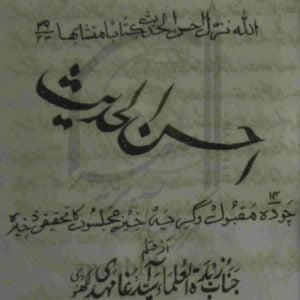 الله نزل احسن الحدیث کتابا متشابها ۳۹/۲۳
احسن الحدیث
۱۴
چودہ مقبول و گریہ خیز مجلسوں کا تحقیقی ذخیرہ
از قلم
جناب زبدۃ العلماء سید آغا مہدی لکھنوی